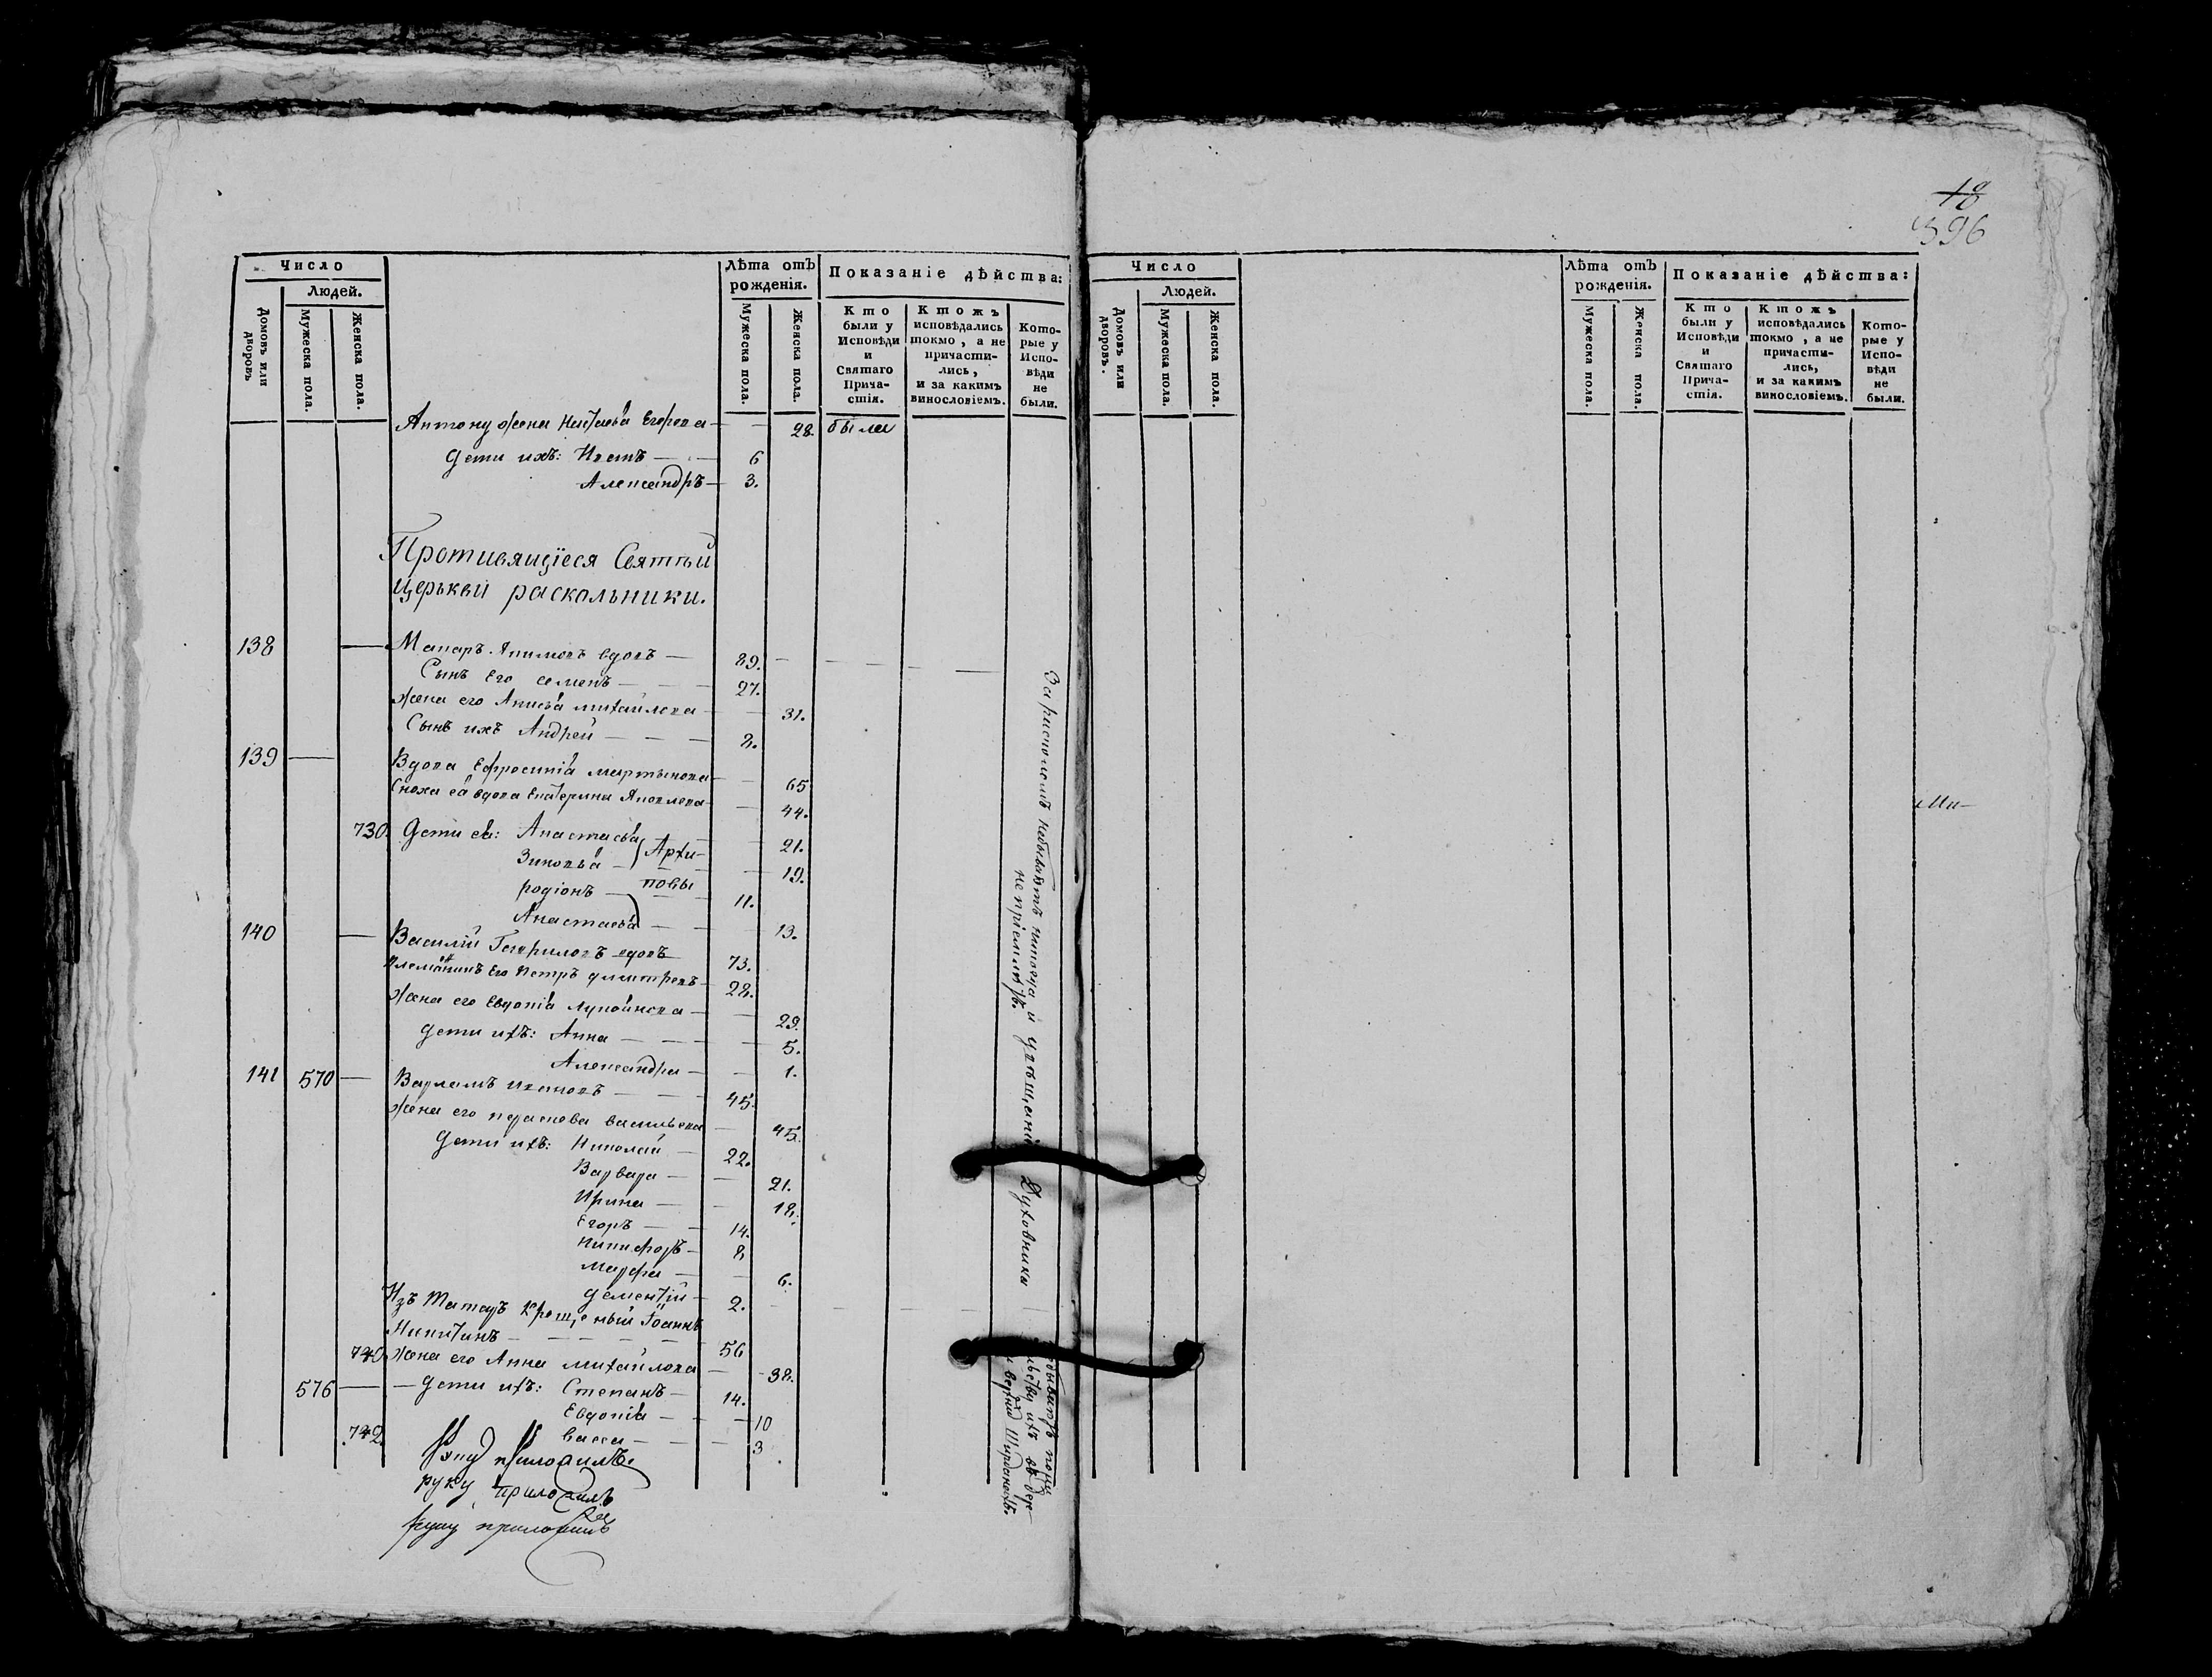 18
396
Число
Людей.
Домовъ или дворовъ
Мужеска пола.
Женска пола.
Лѣта отъ рожденія.
Мужеска пола.
Женска пола.
Показаніе дѣйства:
Кто были у Исповѣди и Святаго Причастія.
Ктожъ исповѣдались токмо, а не причастились, и за какимъ винословіемъ.
Которые у Исповѣди не были.
жена Егорова — — 28. были
Дети ихъ: Иванъ — — 6
Александръ — 3.
Противящіеся Святѣй
Церькви раскольники.
138 — Макаръ вдовъ — 89. — — — — —
Сынъ Его семенъ — — — 27.
Жена его михайлова — — 31.
Сынъ ихъ Андрей — — — 8.
139 — Вдова Ефросинія мартынова — — 65
Сноха ея вдова Екатерина Яковлева — — 44.
730. Дети ея: Анастасья — 21.
Зиновья — Архи- — 19.
родіонъ — повы — 11.
Анастасья — — 13.
140 — Василій Гавриловъ вдовъ 73.
Племянникъ Его Петръ димитревъ — 28.
Жена его Евдокія — — 29.
Дети ихъ: Анна — — — 5.
Александра — — 1.
141 570 — Варламъ Ивановъ — — — 45.
Жена его васильева — 45.
Дети ихъ: Николай — 22.
Варвара — — 21.
Ирина — — 18.
Егоръ — — 14.
Никифоръ — 8
Марфа — — 6.
Дементій — 2. — — — —
Изъ Татаръ Крещеный Іоаннъ
Никитинъ — — — — 56
740. Жена его Анна михайлова — — 38.
576 — — Дети ихъ: Степанъ — 14.
Евдокія — — 10
742. васса — — — 3
руку приложилъ
руку приложилъ
За расколомъ
не пріемлютъ.
Духовника
Число
Людей.
Домовъ или дворовъ.
Мужеска пола.
Женска пола.
Лѣта отъ рожденія.
Мужеска пола.
Женска пола.
Показаніе дѣйства:
Кто были у Исповѣди и Святаго Причастія.
Ктожъ исповѣдались токмо, а не причастились, и за какимъ винословіемъ.
Которые у Исповѣди не были.